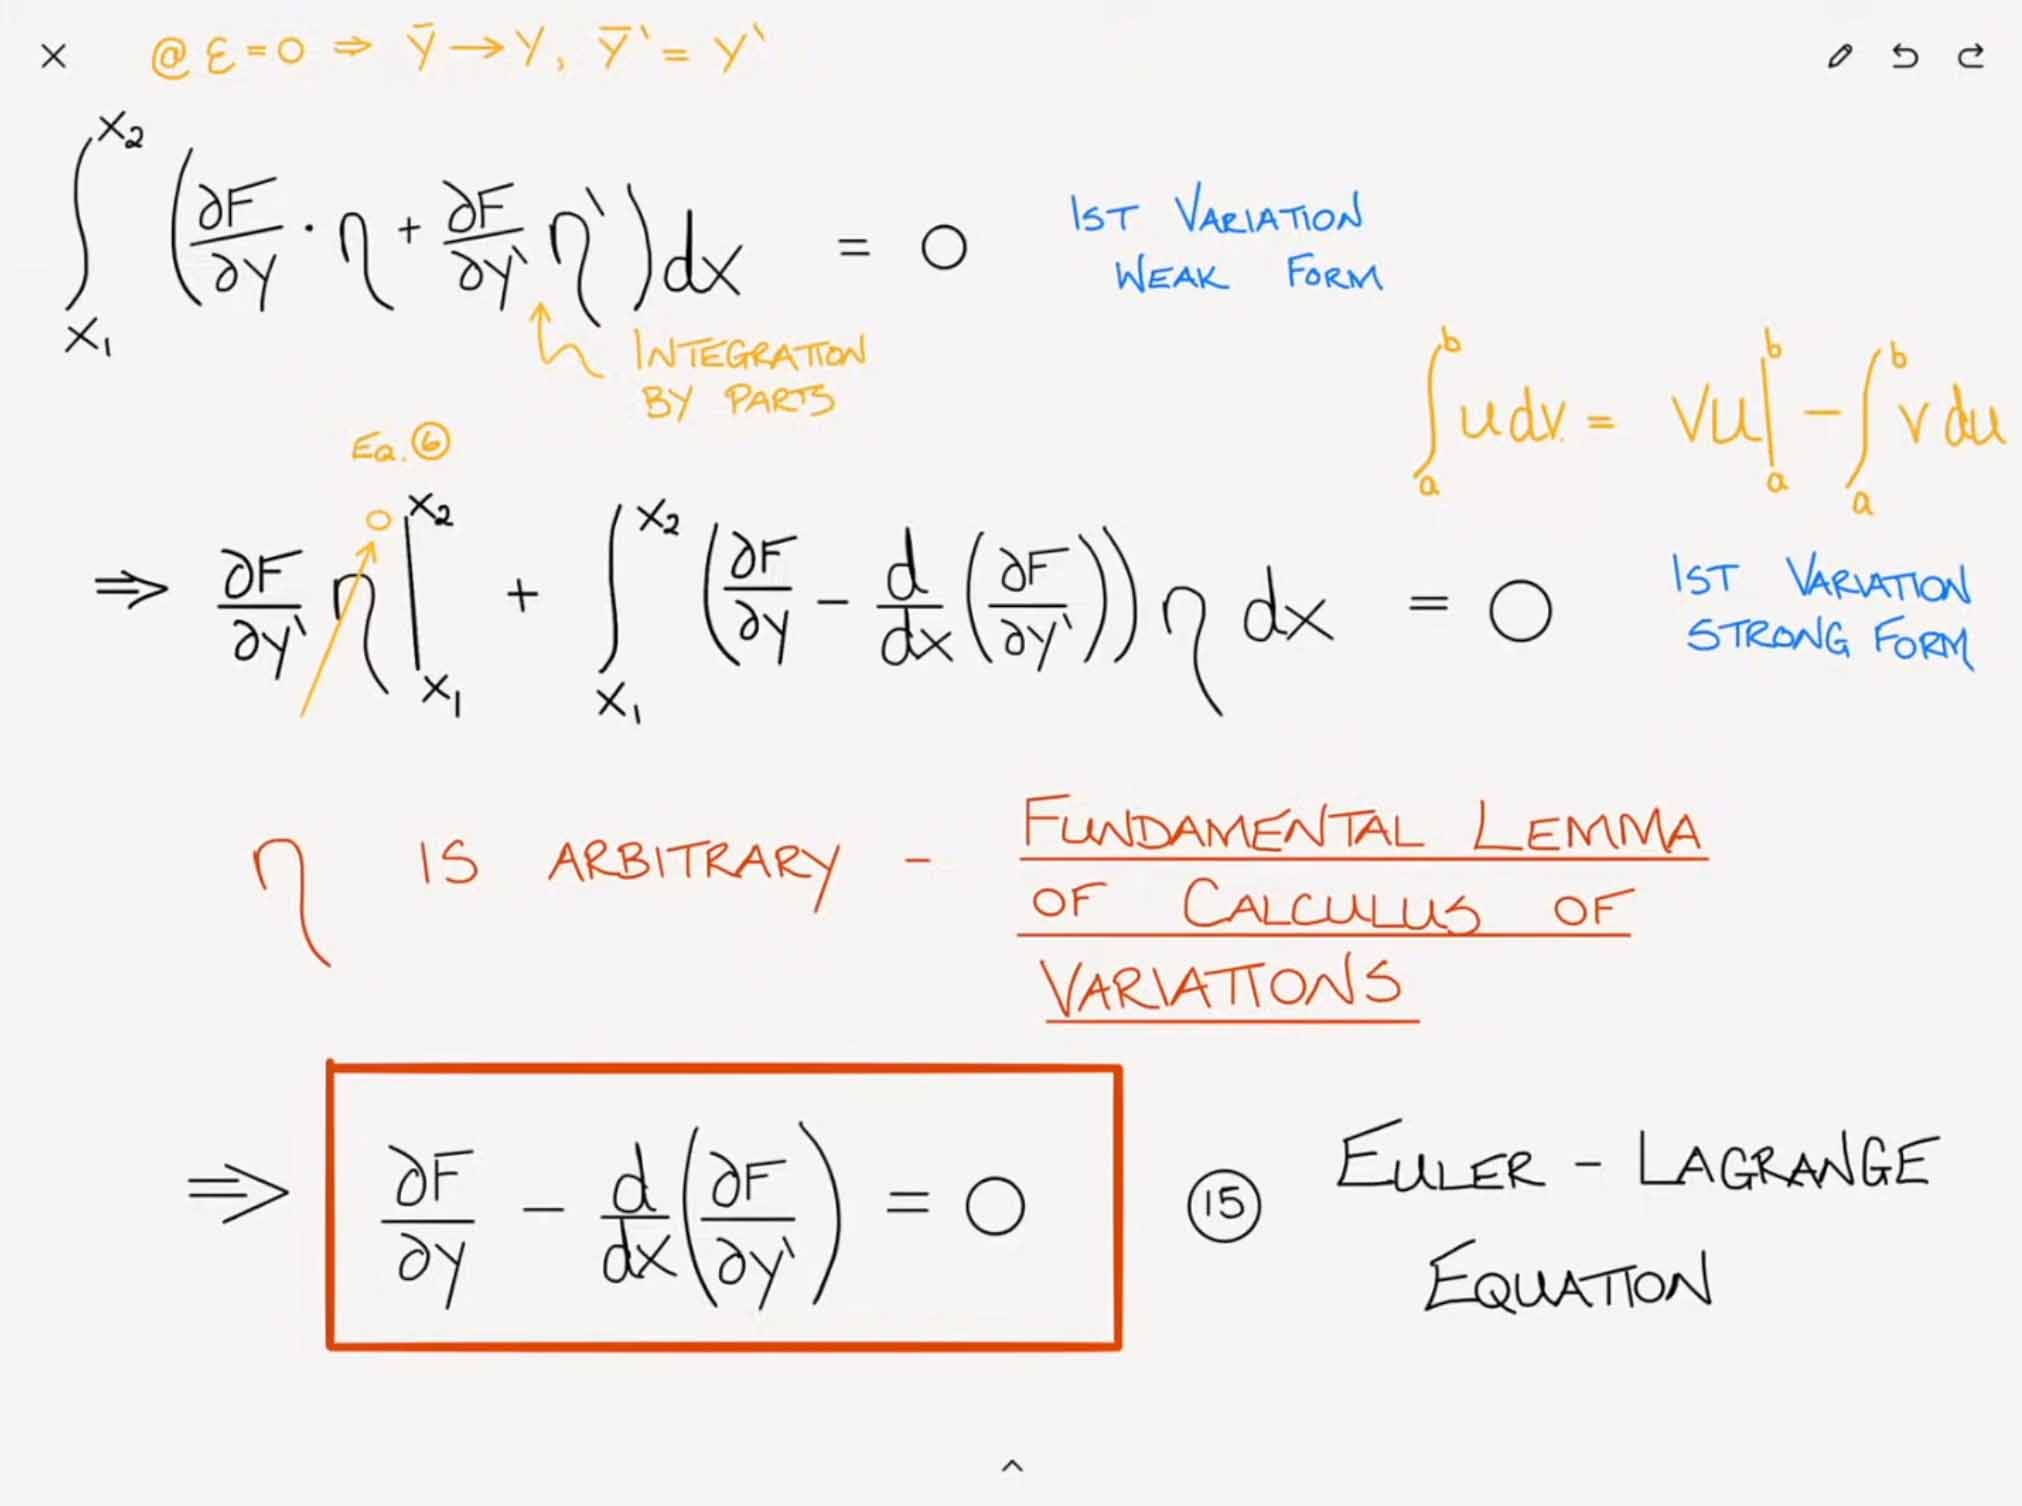 @ ε = 0 ⇒ ȳ → y, ȳ' = y'
∫_{x₁}^{x₂} (∂F/∂y · η + ∂F/∂y' η') dx = 0
1ST VARIATION
WEAK FORM
INTEGRATION
BY PARTS
∫_a^b u dv = vu |_a^b − ∫_a^b v du
EQ. ⑥
⇒ ∂F/∂y' η |_{x₁}^{x₂} → 0 + ∫_{x₁}^{x₂} (∂F/∂y − d/dx (∂F/∂y')) η dx = 0
1ST VARIATION
STRONG FORM
η IS ARBITRARY - FUNDAMENTAL LEMMA
OF CALCULUS OF
VARIATIONS
⇒ ∂F/∂y − d/dx (∂F/∂y') = 0 ⑮ EULER - LAGRANGE
EQUATION